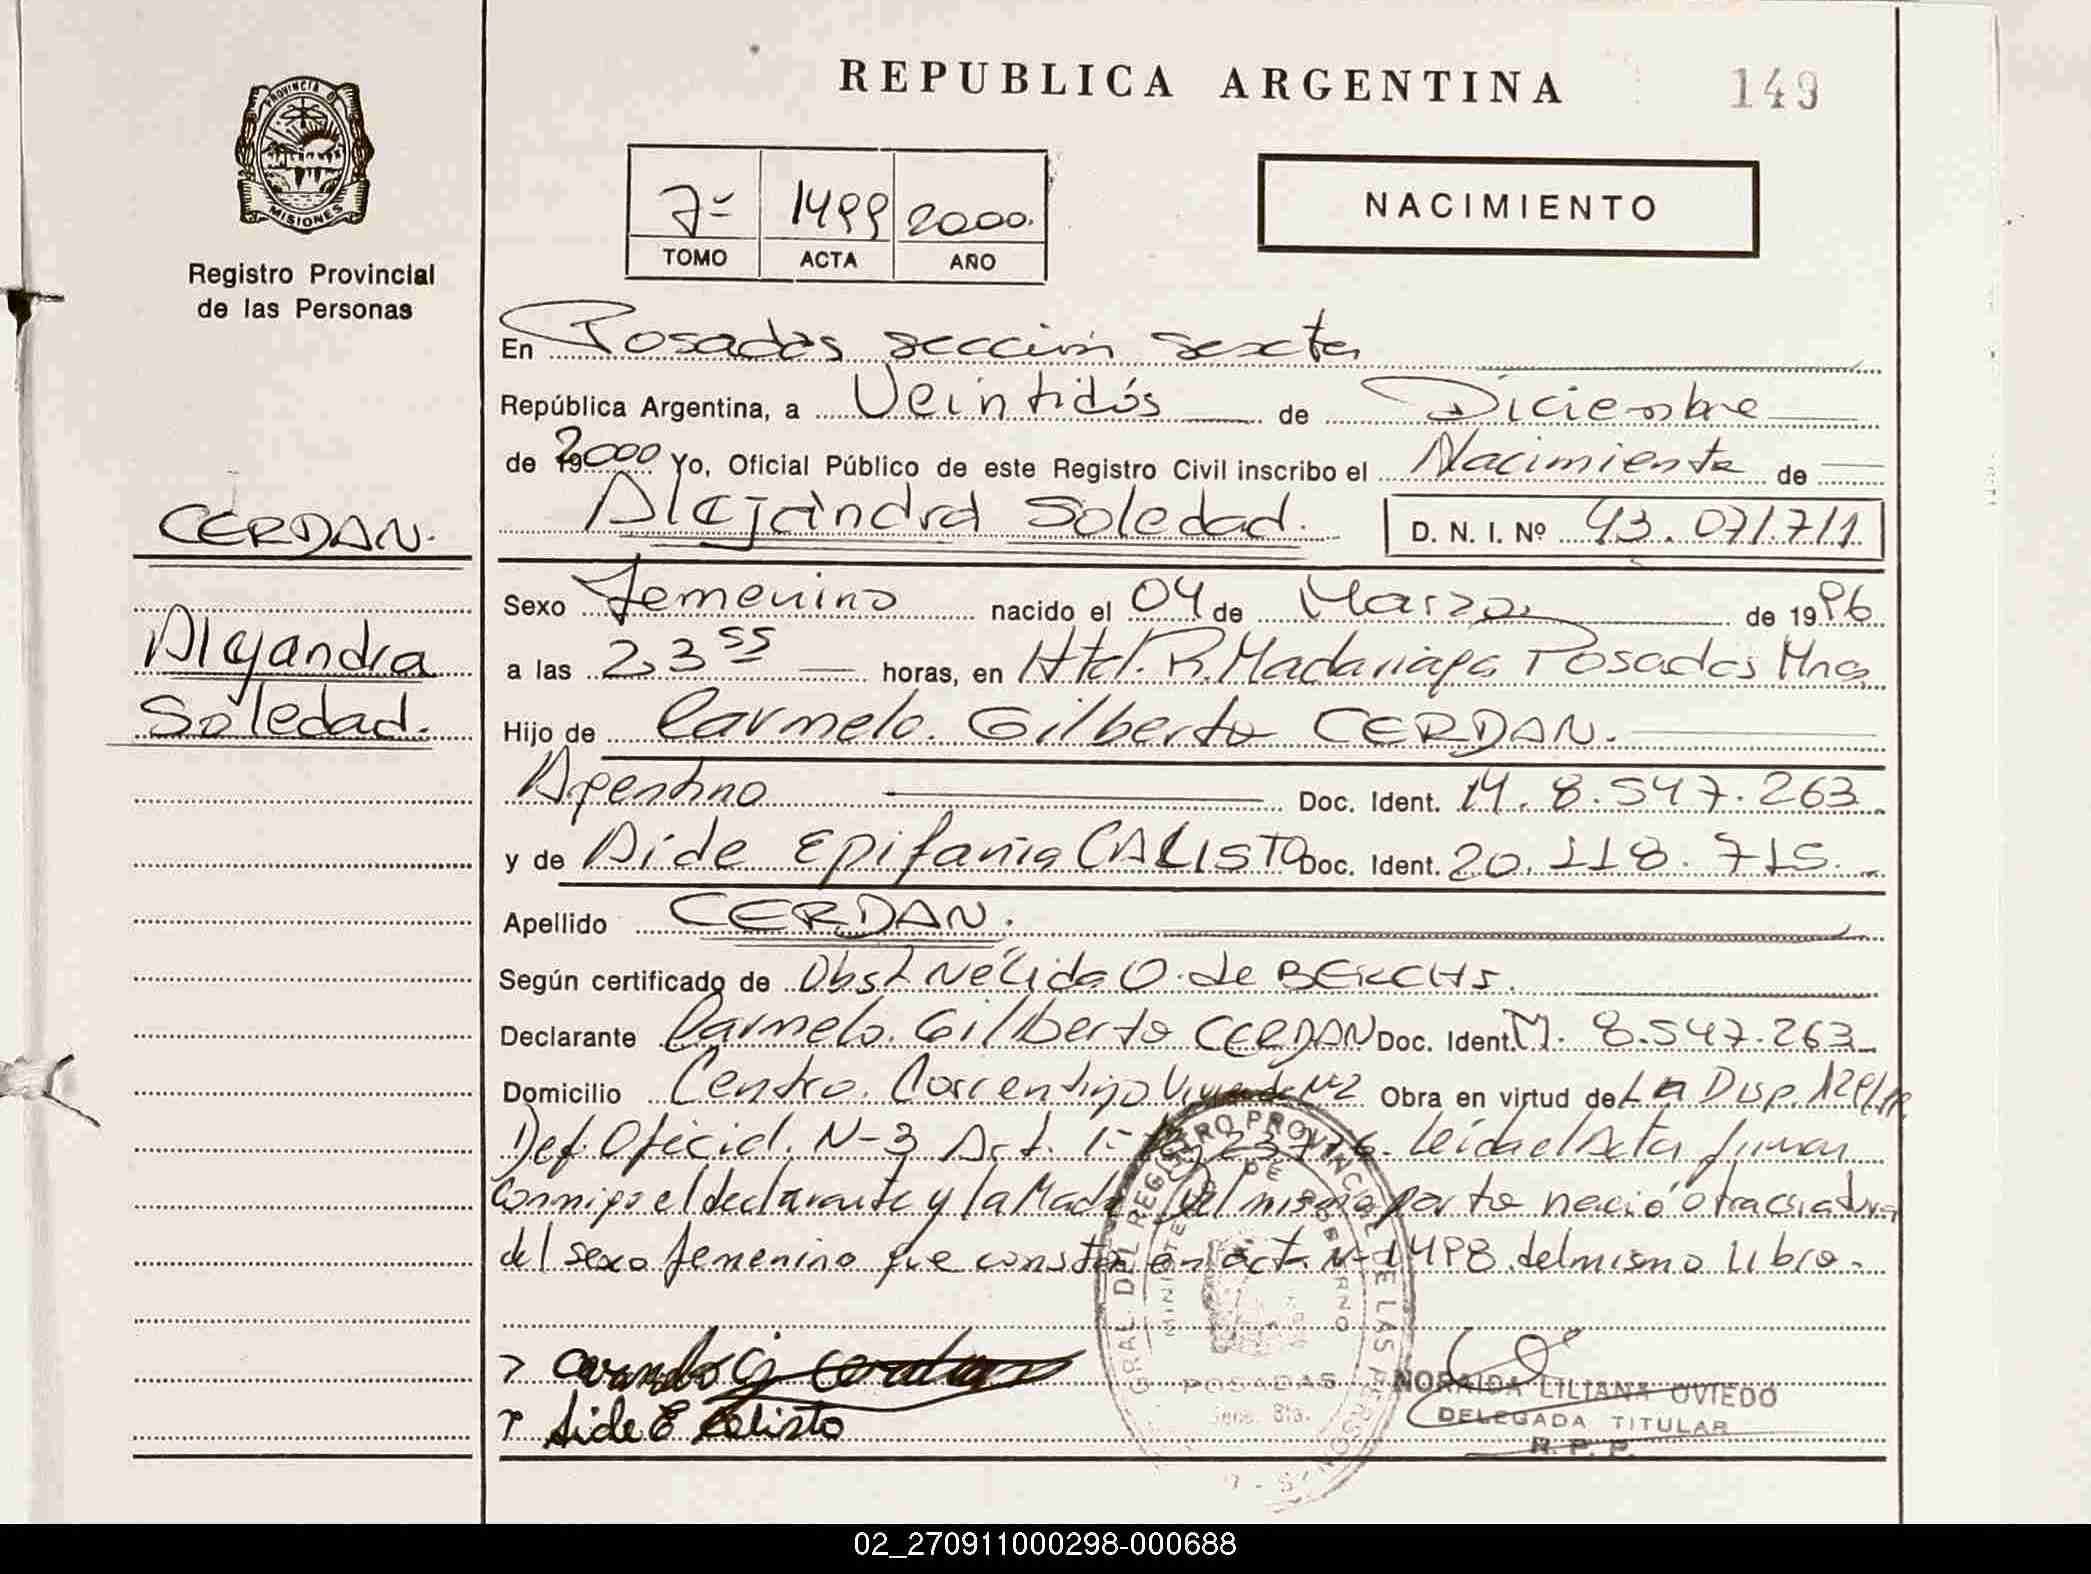 REPUBLICA ARGENTINA
149
PROVINCIA D
MISIONES
Registro Provincial
de las Personas
7º 1499 2000.
TOMO ACTA AÑO
NACIMIENTO
En Posadas sección sexta
República Argentina, a Veintidós de Diciembre
de 2000 Yo, Oficial Público de este Registro Civil inscribo el Nacimiento de
Alejandra Soledad. D. N. I. Nº 43.071.711
CERDAN.
Alejandra
Soledad.
Sexo Femenino nacido el 04 de Marzo de 1996
a las 23 55 horas, en Htal. R. Madariaga Posadas Mnes
Hijo de Carmelo Gilberto CERDAN.
Argentino Doc. Ident. M. 8.547.263
y de Aide Epifania CALISTO Doc. Ident. 20.118.715.
Apellido CERDAN.
Según certificado de Obst Nélida O. de
Declarante Carmelo Gilberto CERDAN Doc. Ident. M. 8.547.263
Domicilio Centro Correntino Obra en virtud de La Disp.
Def. Oficial N-3 Art. 1- Leida el Acta firman
conmigo el declarante y la Madre del mismo parto nació otra criatura
del sexo femenino que consta en act. N-1498 del mismo Libro.
Aide E Calisto
GRAL. DEL REGISTRO PROVINCIAL DE LAS PERSONAS
MINISTERIO DE GOBIERNO
POSADAS
NORAIDA LILIANA OVIEDO
DELEGADA TITULAR
R. P. P.
02_270911000298-000688